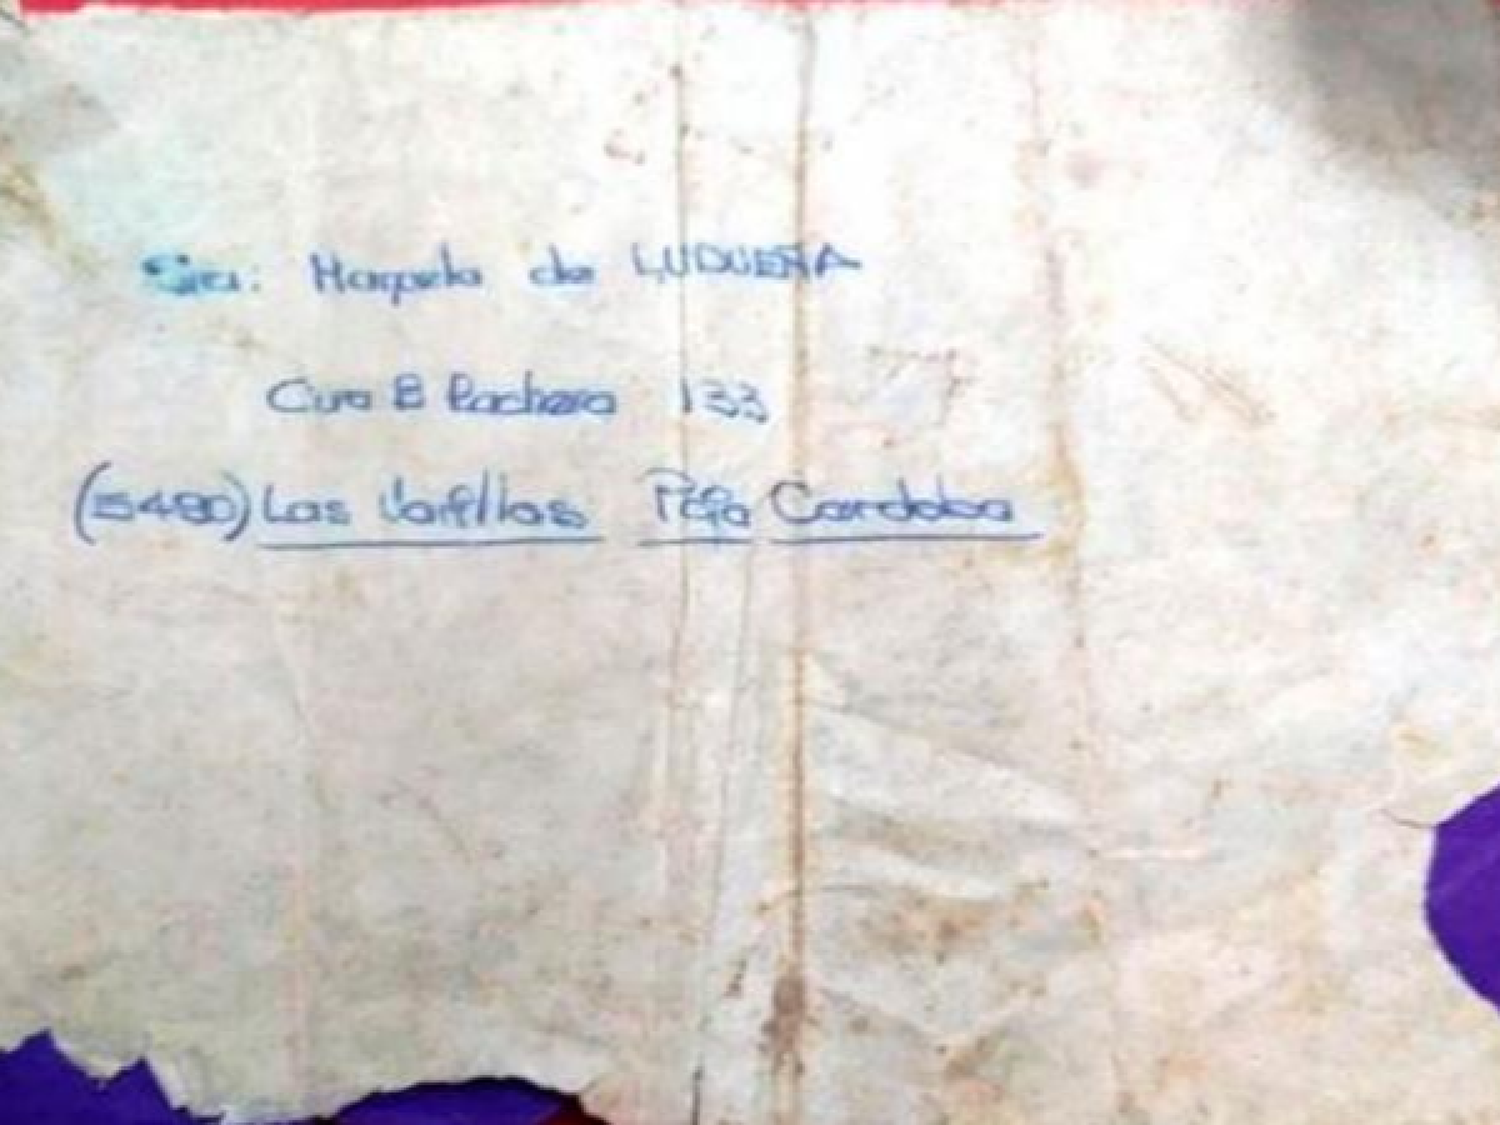 Sra: Marcela de LUDUEÑA
Cura B Pachero 133
(5940) Las Varillas Pcia Cordoba